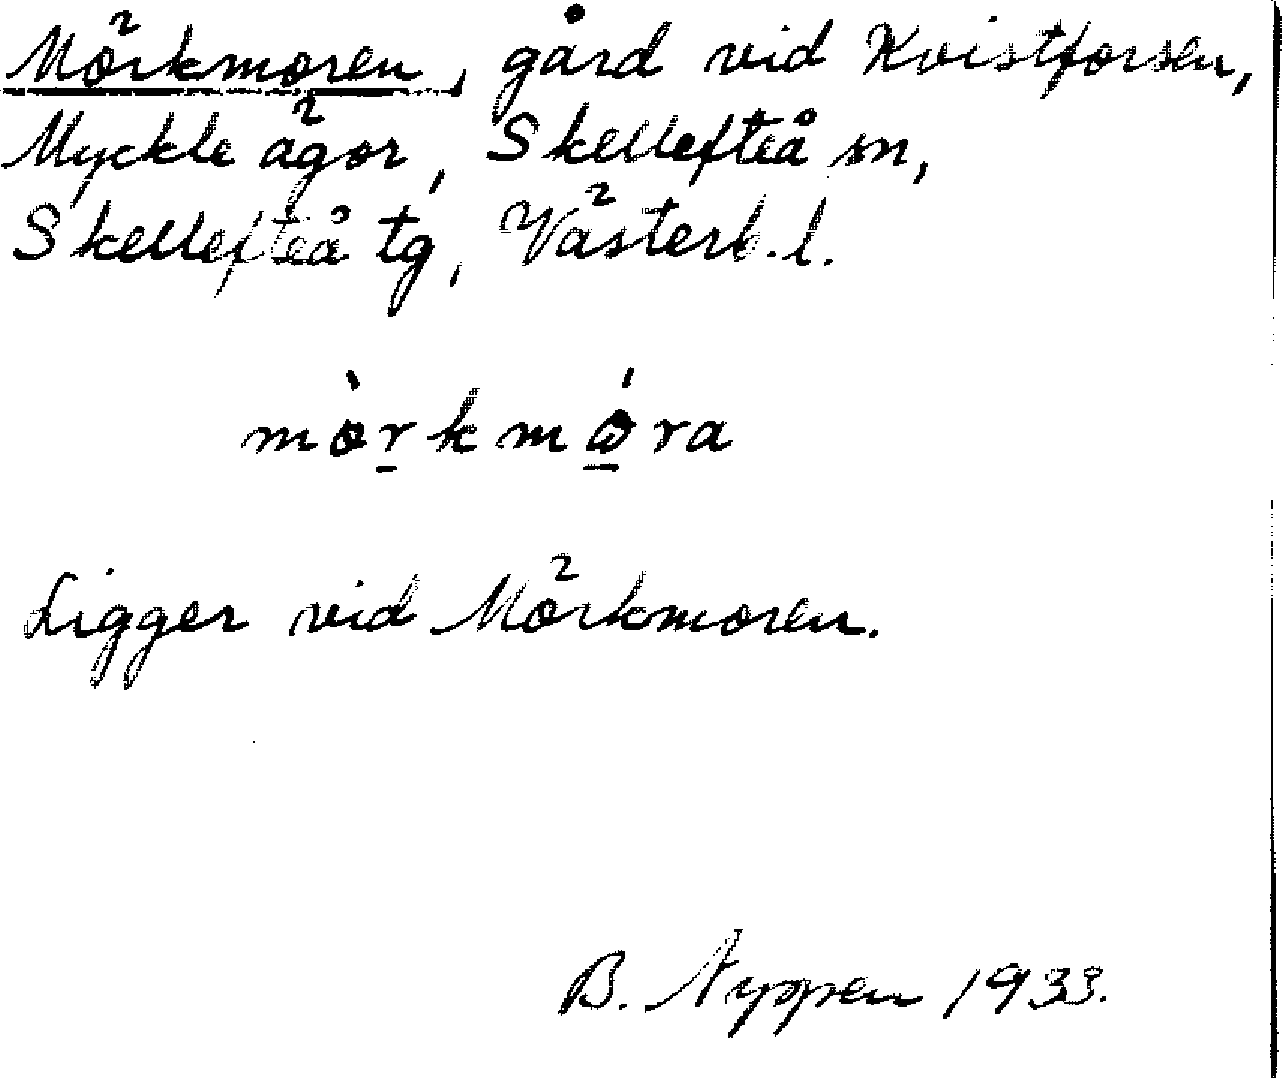 Mörkmoren, gård vid Kvistforsen,
Myckle ägor, Skellefteå sn,
Skellefteå tg, Västerb. l.
mòrkmóra
Ligger vid Mörkmoren.
B. Nyppen 1933.